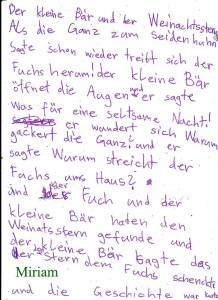 Der kleine Bär und der Weinachtsstern
Als die Ganz zum Seidenhuhn
sagte schon wieder treibt sich der
Fuchs herum. der kleine Bär
öffnet die Augen und er sagte
Was für eine seltsame Nacht!
er wundert sich Warum
gackert die Ganz? und er
sagte Warum streicht der
Fuchs ums Haus?
und der Fuch und der
kleine Bär haten den
Weinatsstern gefunde und
der kleine Bär bagte das
der stern dem Fuchs schenckt
Miriam
und die Geschichte war